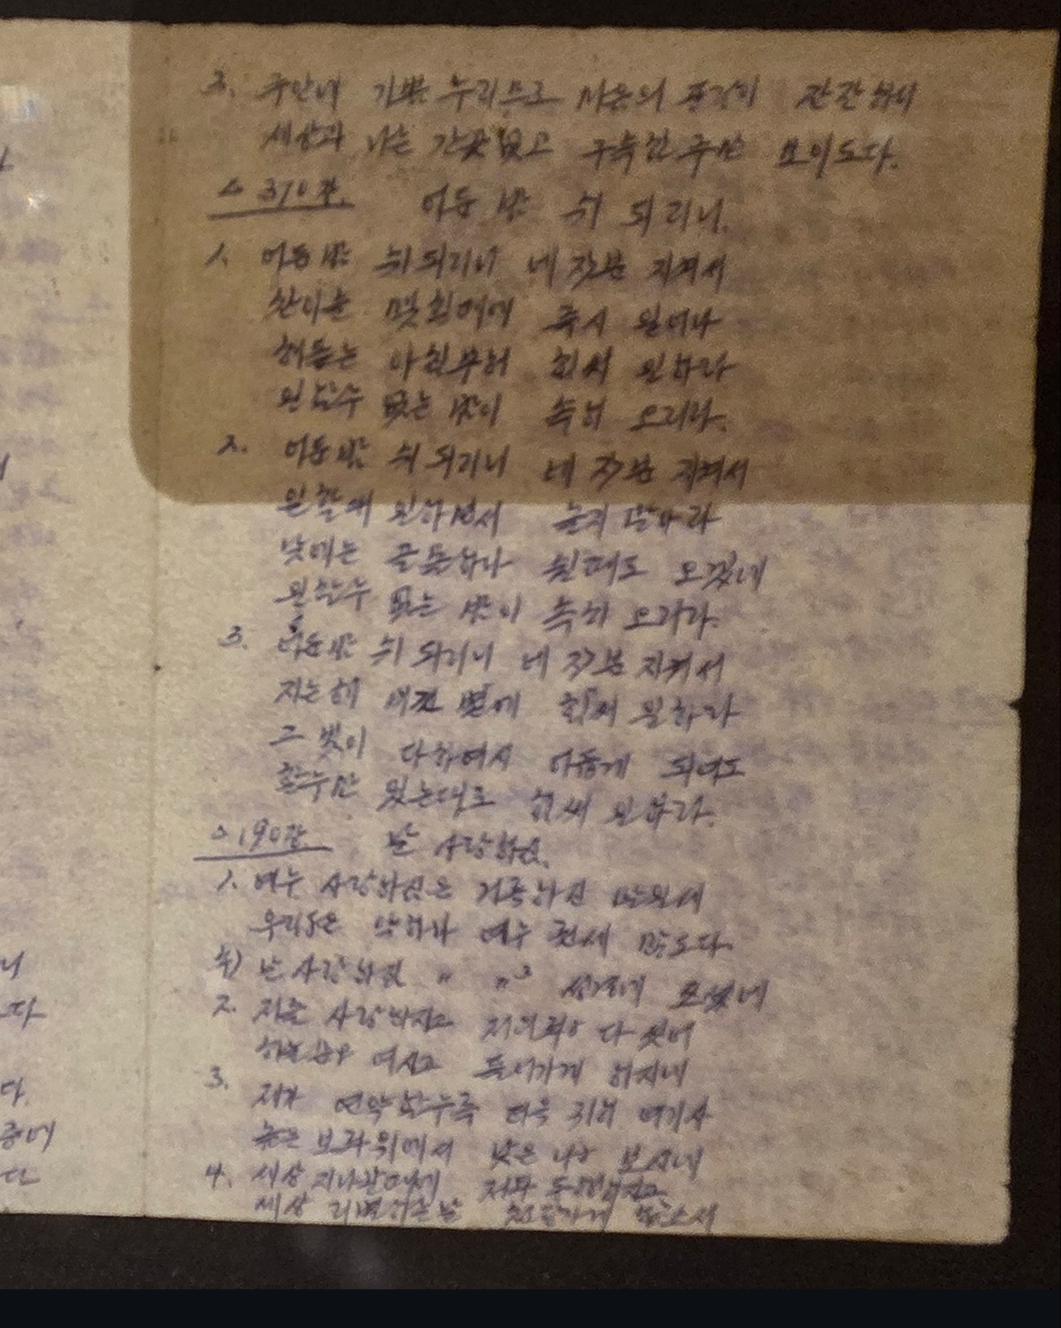 3. 주안에 기쁨 누리므로 마음의 풍랑이 잔잔하니
세상과 나는 간곳없고 구속한 주만 보이도다.
△ 370장. 어둔 밤 쉬 되리니.
1. 어둔 밤 쉬 되리니 네 직분 지켜서
찬이슬 맺힐때에 즉시 일어나
해돋는 아침부터 힘써 일하라
일할수 없는 밤이 속히 오리라.
2. 어둔 밤 쉬 되리니 네 직분 지켜서
일할때 일하면서 놀지 말아라
낮에는 골몰하나 쉴때도 오겠네
일할수 없는 밤이 속히 오리라.
3. 어둔 밤 쉬 되리니 네 직분 지켜서
지는해 비낀 볕에 힘써 일하라
그 빛이 다하여서 어둡게 되여도
할수만 있는대로 힘써 일하라.
△ 190장 날 사랑하심.
1. 예수 사랑하심은 거룩하신 말일세
우리들은 약하나 예수 권세 많도다.
후) 날 사랑하심 〃 〃3 성경에 쓰셨네
2. 저를 사랑하시고 저의죄를 다 씻어
하늘문을 여시고 들어가게 하시네
3. 제가 연약할수록 더욱 귀히 여기사
높은 보좌위에서 낮은 나를 보시네
4. 세상 지나갈때에 저와 동행하시고
세상 리별하는날